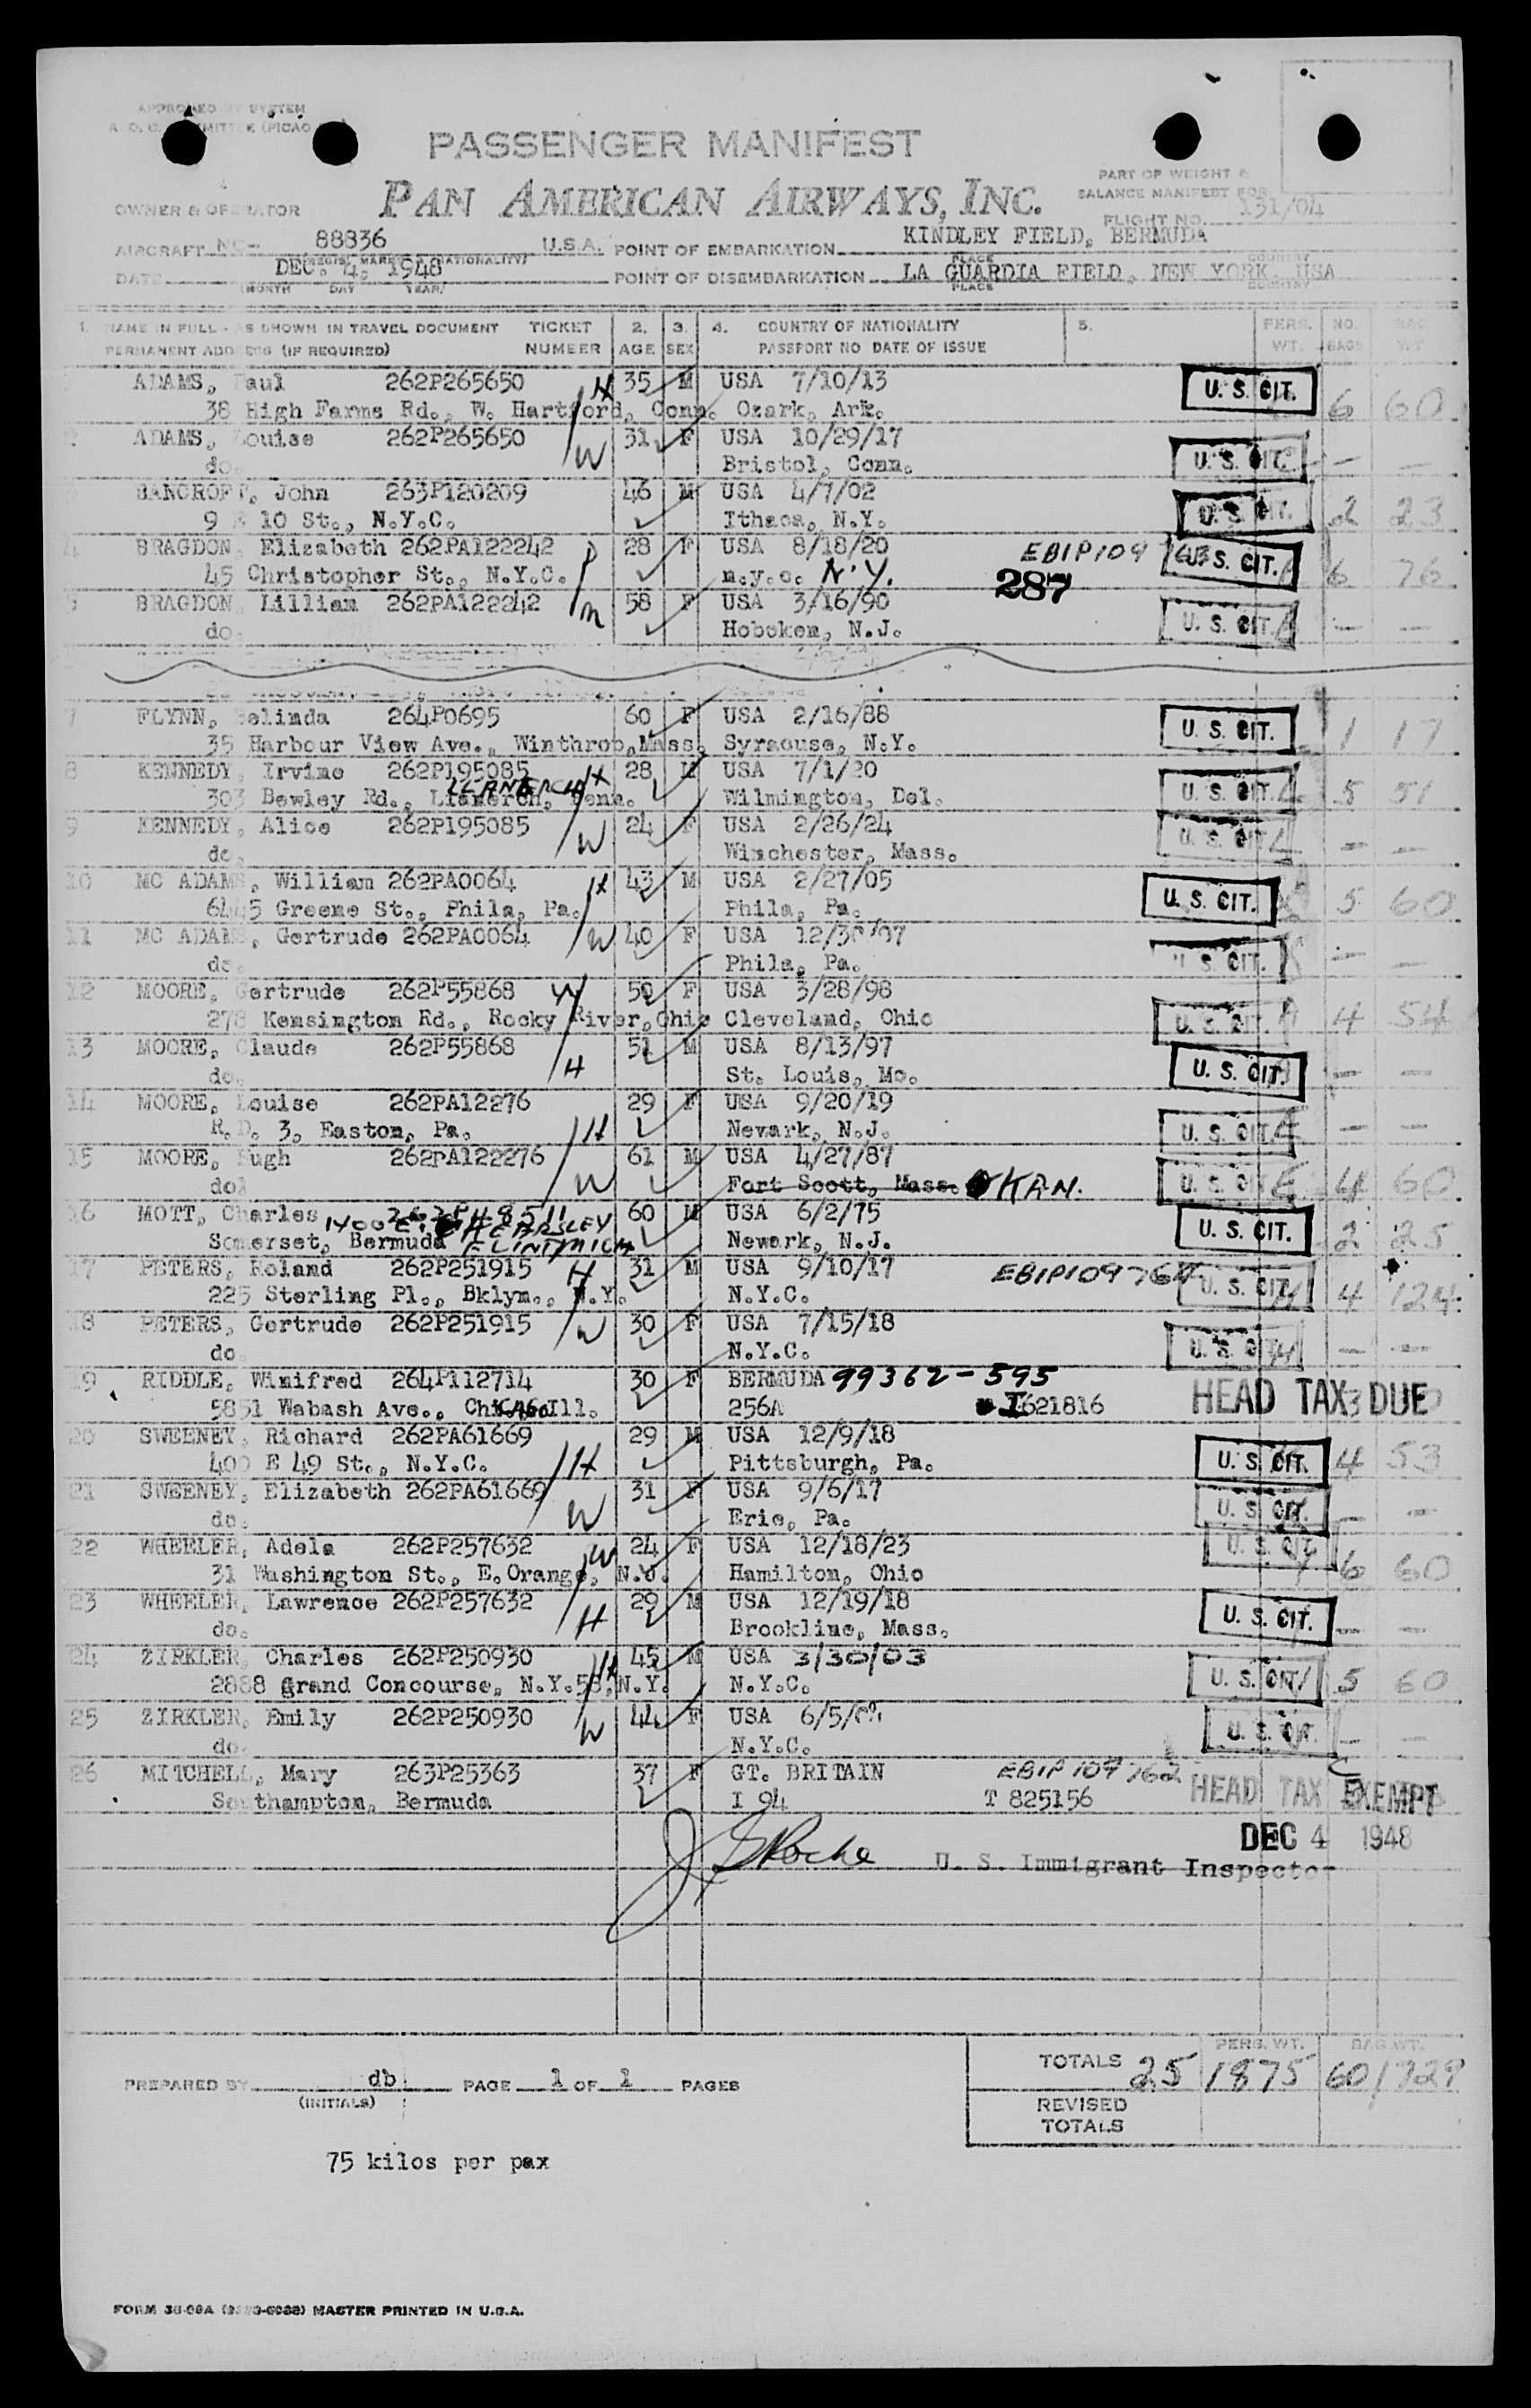 APPROVED BY SYSTEM
PASSENGER MANIFEST
PAN AMERICAN AIRWAYS, INC.
PART OF WEIGHT &
BALANCE MANIFEST FOR
FLIGHT NO. 131/04
OWNER & OPERATOR
AIRCRAFT NC- 88836 U.S.A. POINT OF EMBARKATION KINDLEY FIELD, BERMUDA
(REGIS. MARKS & NATIONALITY) PLACE COUNTRY
DATE DEC. 4, 1948 POINT OF DISEMBARKATION LA GUARDIA FIELD, NEW YORK, USA
MONTH DAY YEAR PLACE COUNTRY
1. NAME IN FULL - AS SHOWN IN TRAVEL DOCUMENT TICKET 2. 3. 4. COUNTRY OF NATIONALITY 5. PERS. NO. BAG
PERMANENT ADDRESS (IF REQUIRED) NUMBER AGE SEX PASSPORT NO DATE OF ISSUE WT. BAGS WT
ADAMS, Paul 262P265650 H 35 M USA 7/10/13 U. S. CIT. 6 60
38 High Farms Rd., W. Hartford, Conn. Ozark, Ark.
ADAMS, Louise 262P265650 W 31 F USA 10/29/17 U. S. CIT. — —
do. Bristol, Conn.
BANCROFT, John 263P120209 46 M USA 4/7/02 U. S. CIT. 2 23
9 E 10 St., N.Y.C. Ithaca, N.Y.
4 BRAGDON, Elizabeth 262PA122242 D 28 F USA 8/18/20 EBIP109763 U. S. CIT. 6 76
45 Christopher St., N.Y.C. n.y.c. N.Y. 287
BRAGDON, Lillian 262PA122242 m 58 F USA 3/16/90 U. S. CIT. — —
do. Hoboken, N.J.
7 FLYNN, Belinda 264P0695 60 F USA 2/16/88 U. S. CIT. 1 17
35 Harbour View Ave., Winthrop, Mass. Syracuse, N.Y.
8 KENNEDY, Irvine 262P195085 H 28 M USA 7/1/20 U. S. CIT. 5 51
LLANERCH
303 Bewley Rd., Llanerch, Penn. Wilmington, Del.
9 KENNEDY, Alice 262P195085 W 24 F USA 2/26/24 U. S. CIT. — —
do. Winchester, Mass.
10 MC ADAMS, William 262PA0064 H 43 M USA 2/27/05 U. S. CIT. 5 60
6445 Greene St., Phila, Pa. Phila, Pa.
11 MC ADAMS, Gertrude 262PA0064 W 40 F USA 12/30/07 U. S. CIT. — —
do. Phila, Pa.
12 MOORE, Gertrude 262P55868 W 50 F USA 3/28/98 U. S. CIT. 4 54
278 Kensington Rd., Rocky River, Ohio Cleveland, Ohio
13 MOORE, Claude 262P55868 H 51 M USA 8/13/97 U. S. CIT. — —
do. St. Louis, Mo.
14 MOORE, Louise 262PA12276 29 F USA 9/20/19 U. S. CIT. — —
R.D. 3, Easton, Pa. H Newark, N.J.
15 MOORE, Hugh 262PA122276 W 61 M USA 4/27/87 U. S. CIT. 4 60
do Fort Scott, Mass. KAN.
16 MOTT, Charles 262P48511 60 M USA 6/2/75 U. S. CIT. 2 25
1400 E. KEARSLEY
Somerset, Bermuda FLINT MICH Newark, N.J.
17 PETERS, Roland 262P251915 H 31 M USA 9/10/17 EBIP109764 U. S. CIT. 4 124
225 Sterling Pl., Bklyn., N.Y. N.Y.C.
18 PETERS, Gertrude 262P251915 W 30 F USA 7/15/18 U. S. CIT. — —
do N.Y.C.
19 RIDDLE, Winifred 264P112714 30 F BERMUDA 99362-595 HEAD TAX DUE
5851 Wabash Ave., Chicago Ill. 256A I621816
20 SWEENEY, Richard 262PA61669 H 29 M USA 12/9/18 U. S. CIT. 4 53
400 E 49 St., N.Y.C. Pittsburgh, Pa.
21 SWEENEY, Elizabeth 262PA61669 W 31 F USA 9/6/17 U. S. CIT. — —
do. Erie, Pa.
22 WHEELER, Adela 262P257632 W 24 F USA 12/18/23 U. S. CIT. 6 60
31 Washington St., E. Orange, N.J. Hamilton, Ohio
23 WHEELER, Lawrence 262P257632 H 29 M USA 12/19/18 U. S. CIT. — —
do. Brookline, Mass.
24 ZIRKLER, Charles 262P250930 H 45 M USA 3/30/03 U. S. CIT. 5 60
2888 Grand Concourse, N.Y.58, N.Y. N.Y.C.
25 ZIRKLER, Emily 262P250930 W 44 F USA 6/5/ U. S. CIT. — —
do. N.Y.C.
26 MITCHELL, Mary 263P25363 37 F GT. BRITAIN EBIP 109762 HEAD TAX EXEMPT
Southampton, Bermuda I 94 T 825156
DEC 4 1948
Roche U. S. Immigrant Inspector
PERS. WT. BAG WT.
TOTALS 25 1875 60/729
PREPARED BY db PAGE 1 OF 1 PAGES
(INITIALS)
REVISED
TOTALS
75 kilos per pax
MASTER PRINTED IN U.S.A.